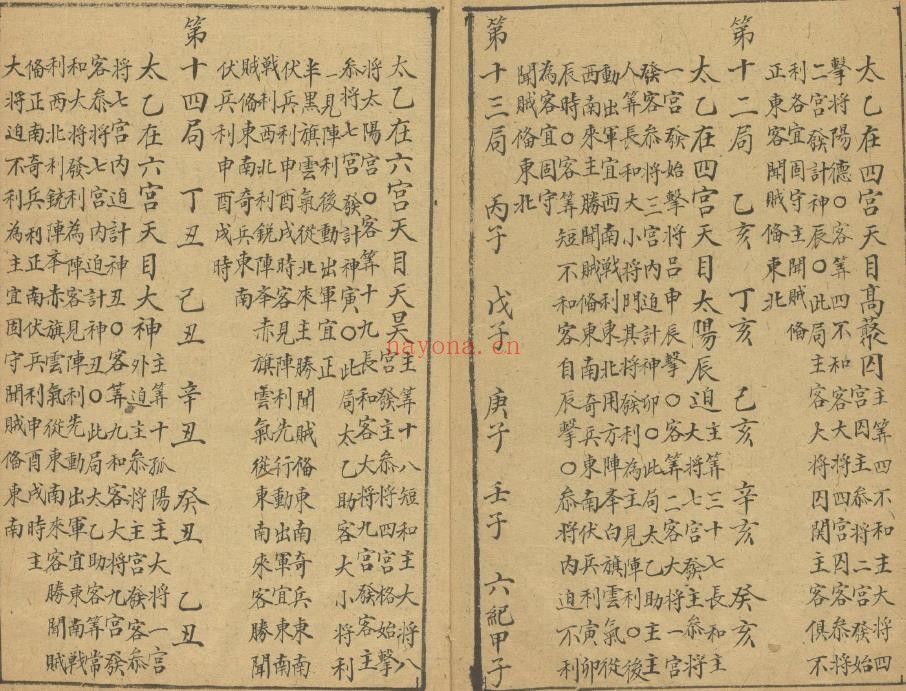 太乙在四宮天目高叢囚主筭四不和主大將四
宮囚主參將二宮發始
擊將陽德〇客筭四不和客大將四宮囚客參將
二宮發計神辰〇此局主客大將囚関主客俱不
利各宜固守主聞賊俻
正東客聞賊俻東北
第十二局 乙亥 丁亥 己亥 辛亥 癸亥
太乙在四宮天目太陽辰迫主筭三十七長和主
大將七宮發主參將
一宮發始擊將呂申辰擊〇客筭二客大將二宮
發客參將三宮內迫計神卯〇此局太乙助主主
人筭長和大小將門具將發利為主見陣利後
動出軍宜西南戰利東北用方陣奉白旗雲氣從
西南來主勝聞賊俻東南奇兵東南伏兵利寅卯
辰時〇客筭短不和客自辰擊〇參將內迫不利
為客宜固守
聞賊俻東北
第十三局 丙子 戊子 庚子 壬子 六紀甲子
太乙在六宮天目天昊主筭十八短和主大將八
宮發主參將四宮格始擊
將太陽宮〇客筭十九長和客大將九宮發客
參將七宮發計神寅〇此局太乙助客大小將利
一見陣利後動出軍宜正
半黑旗雲氣從北來主勝聞賊俻東南奇兵東南
伏兵利申酉戌時客見陣利先行動出軍宜東南
戰利西北利銳陣奉赤旗雲氣從東南來客勝聞
賊俻東南奇兵東南
伏兵利申酉戌時
第十四局 丁丑 己丑 辛丑 癸丑 乙丑
太乙在六宮天目大神外迫主筭十孤陽主大將一宮
將七宮內迫計神丑〇客筭九和客大將九宮發
客參將七宮內迫計神丑〇此局太乙助客筭常
和大將發利為陣客見陣利先動出軍宜東南戰
利西北利銳陣奉赤旗雲氣從東南來客勝聞賊
俻正南奇兵利正南伏兵利申酉戌時主
大將迫不利為主宜固守聞賊俻東南
nayona.cn